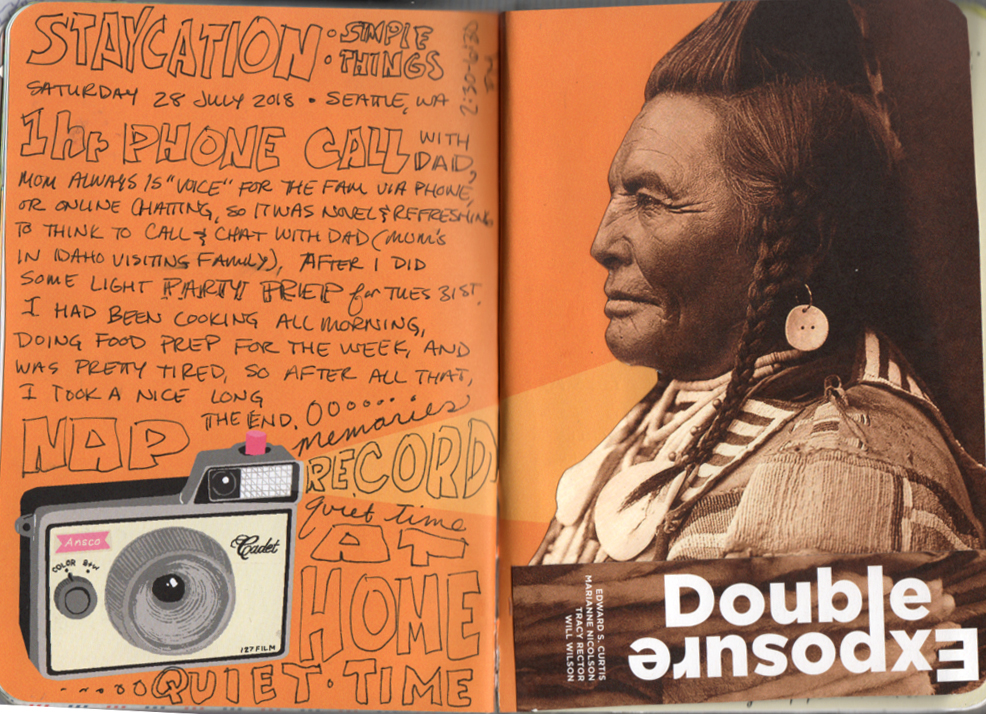 STAYCATION · SIMPLE THINGS
SATURDAY 28 JULY 2018 · SEATTLE, WA
2:30-6:30 PM
1hr PHONE CALL WITH DAD,
MOM ALWAYS IS "VOICE" FOR THE FAM VIA PHONE,
OR ONLINE CHATTING, SO IT WAS NOVEL & REFRESHING
TO THINK TO CALL & CHAT WITH DAD (MOM'S
IN IDAHO VISITING FAMILY), AFTER I DID
SOME LIGHT PARTY PREP for TUES 31ST.
I HAD BEEN COOKING ALL MORNING,
DOING FOOD PREP FOR THE WEEK, AND
WAS PRETTY TIRED, SO AFTER ALL THAT,
I TOOK A NICE LONG
NAP
THE END.
memories
RECORD
quiet time
AT
HOME
QUIET · TIME
Ansco
Cadet
COLOR B&W
127 FILM
EDWARD S. CURTIS
MARIANNE NICOLSON
TRACY RECTOR
WILL WILSON
Double
Exposure